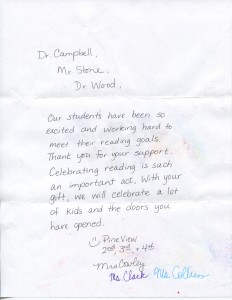 Dr. Campbell,
Mr. Stone,
Dr. Wood,
Our students have been so
excited and working hard to
meet their reading goals.
Thank you for your support.
Celebrating reading is such
an important act. With your
gift, we will celebrate a lot
of kids and the doors you
have opened.
PineView
2nd, 3rd, + 4th
Mrs. Cowley
Ms. Clark Ms. Collins